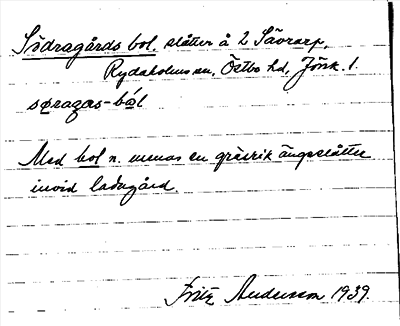 Södragårds bol. slåtter å 2 Sävrarp,
Rydaholms sn, Östbo hd, Jönk. l.
søragas-bål
Med bol n. menas en gräsrik ängsslätter
invid ladugård.
Fritz Andersson 1939.